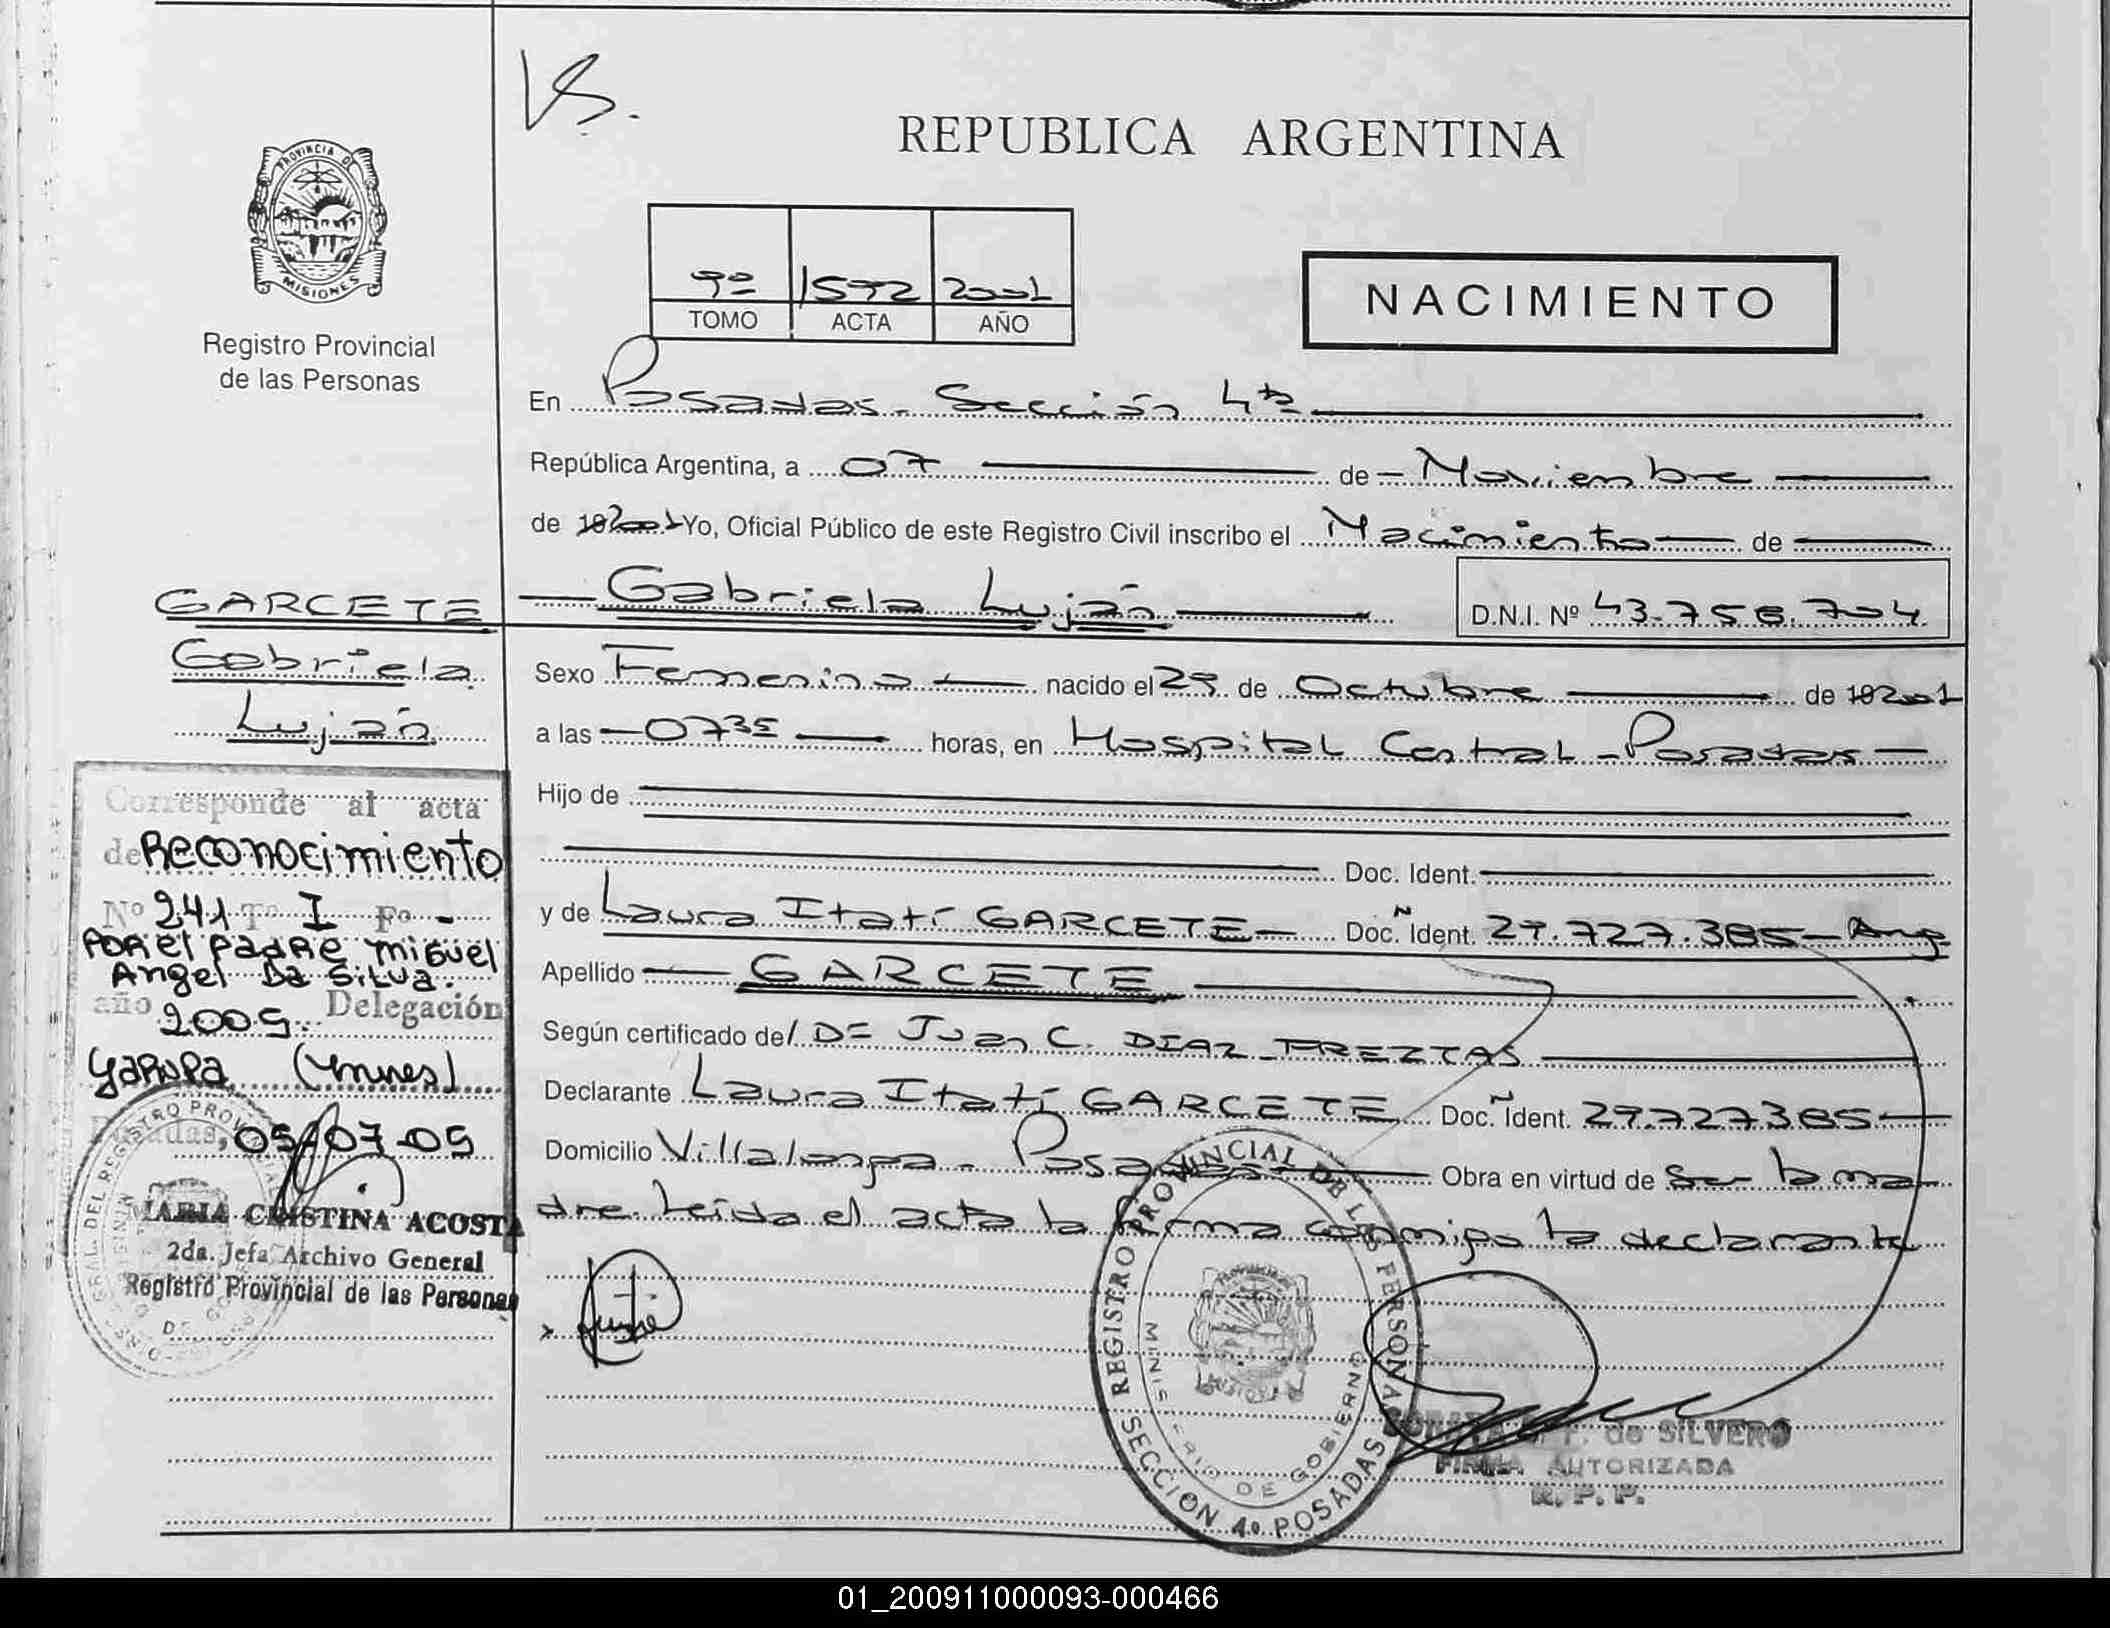 VS.
REPUBLICA ARGENTINA
PROVINCIA DE
MISIONES
Registro Provincial
de las Personas
9º 1572 2001
TOMO ACTA AÑO
NACIMIENTO
En Posadas - Sección 4ta
República Argentina, a 07 de Noviembre
de 192001 Yo, Oficial Público de este Registro Civil inscribo el Nacimiento de
Gabriela Luján
D.N.I. Nº 43.758.704
GARCETE
Gabriela
Luján
Sexo Femenino nacido el 29 de Octubre de 192001
a las 0735 horas, en Hospital Central - Posadas
Hijo de
Doc. Ident.
y de Laura Itatí GARCETE Doc. Ñ Ident. 29.727.385 - Arg
Apellido GARCETE
Según certificado del DE Juan C. DIAZ FREZTAS
Declarante Laura Itatí GARCETE Doc. Ñ Ident. 29.727385
Domicilio Villalonga - Posadas Obra en virtud de Ser la ma
dre. Leída el acta la firma conmigo la declarante
Corresponde al acta
de Reconocimiento
Nº 241 Tº I Fº -
POR el padre miguel
Angel Da Silva.
año 2005 Delegación
GARUPA (mnes)
Posadas, 05/07-05
MARIA CRISTINA ACOSTA
2da. Jefa Archivo General
Registro Provincial de las Personas
REGISTRO PROVINCIAL DE LAS PERSONAS
MINISTERIO DE GOBIERNO
SECCION 4º POSADAS
de SILVERO
FIRMA AUTORIZADA
R. P. P.
01_200911000093-000466